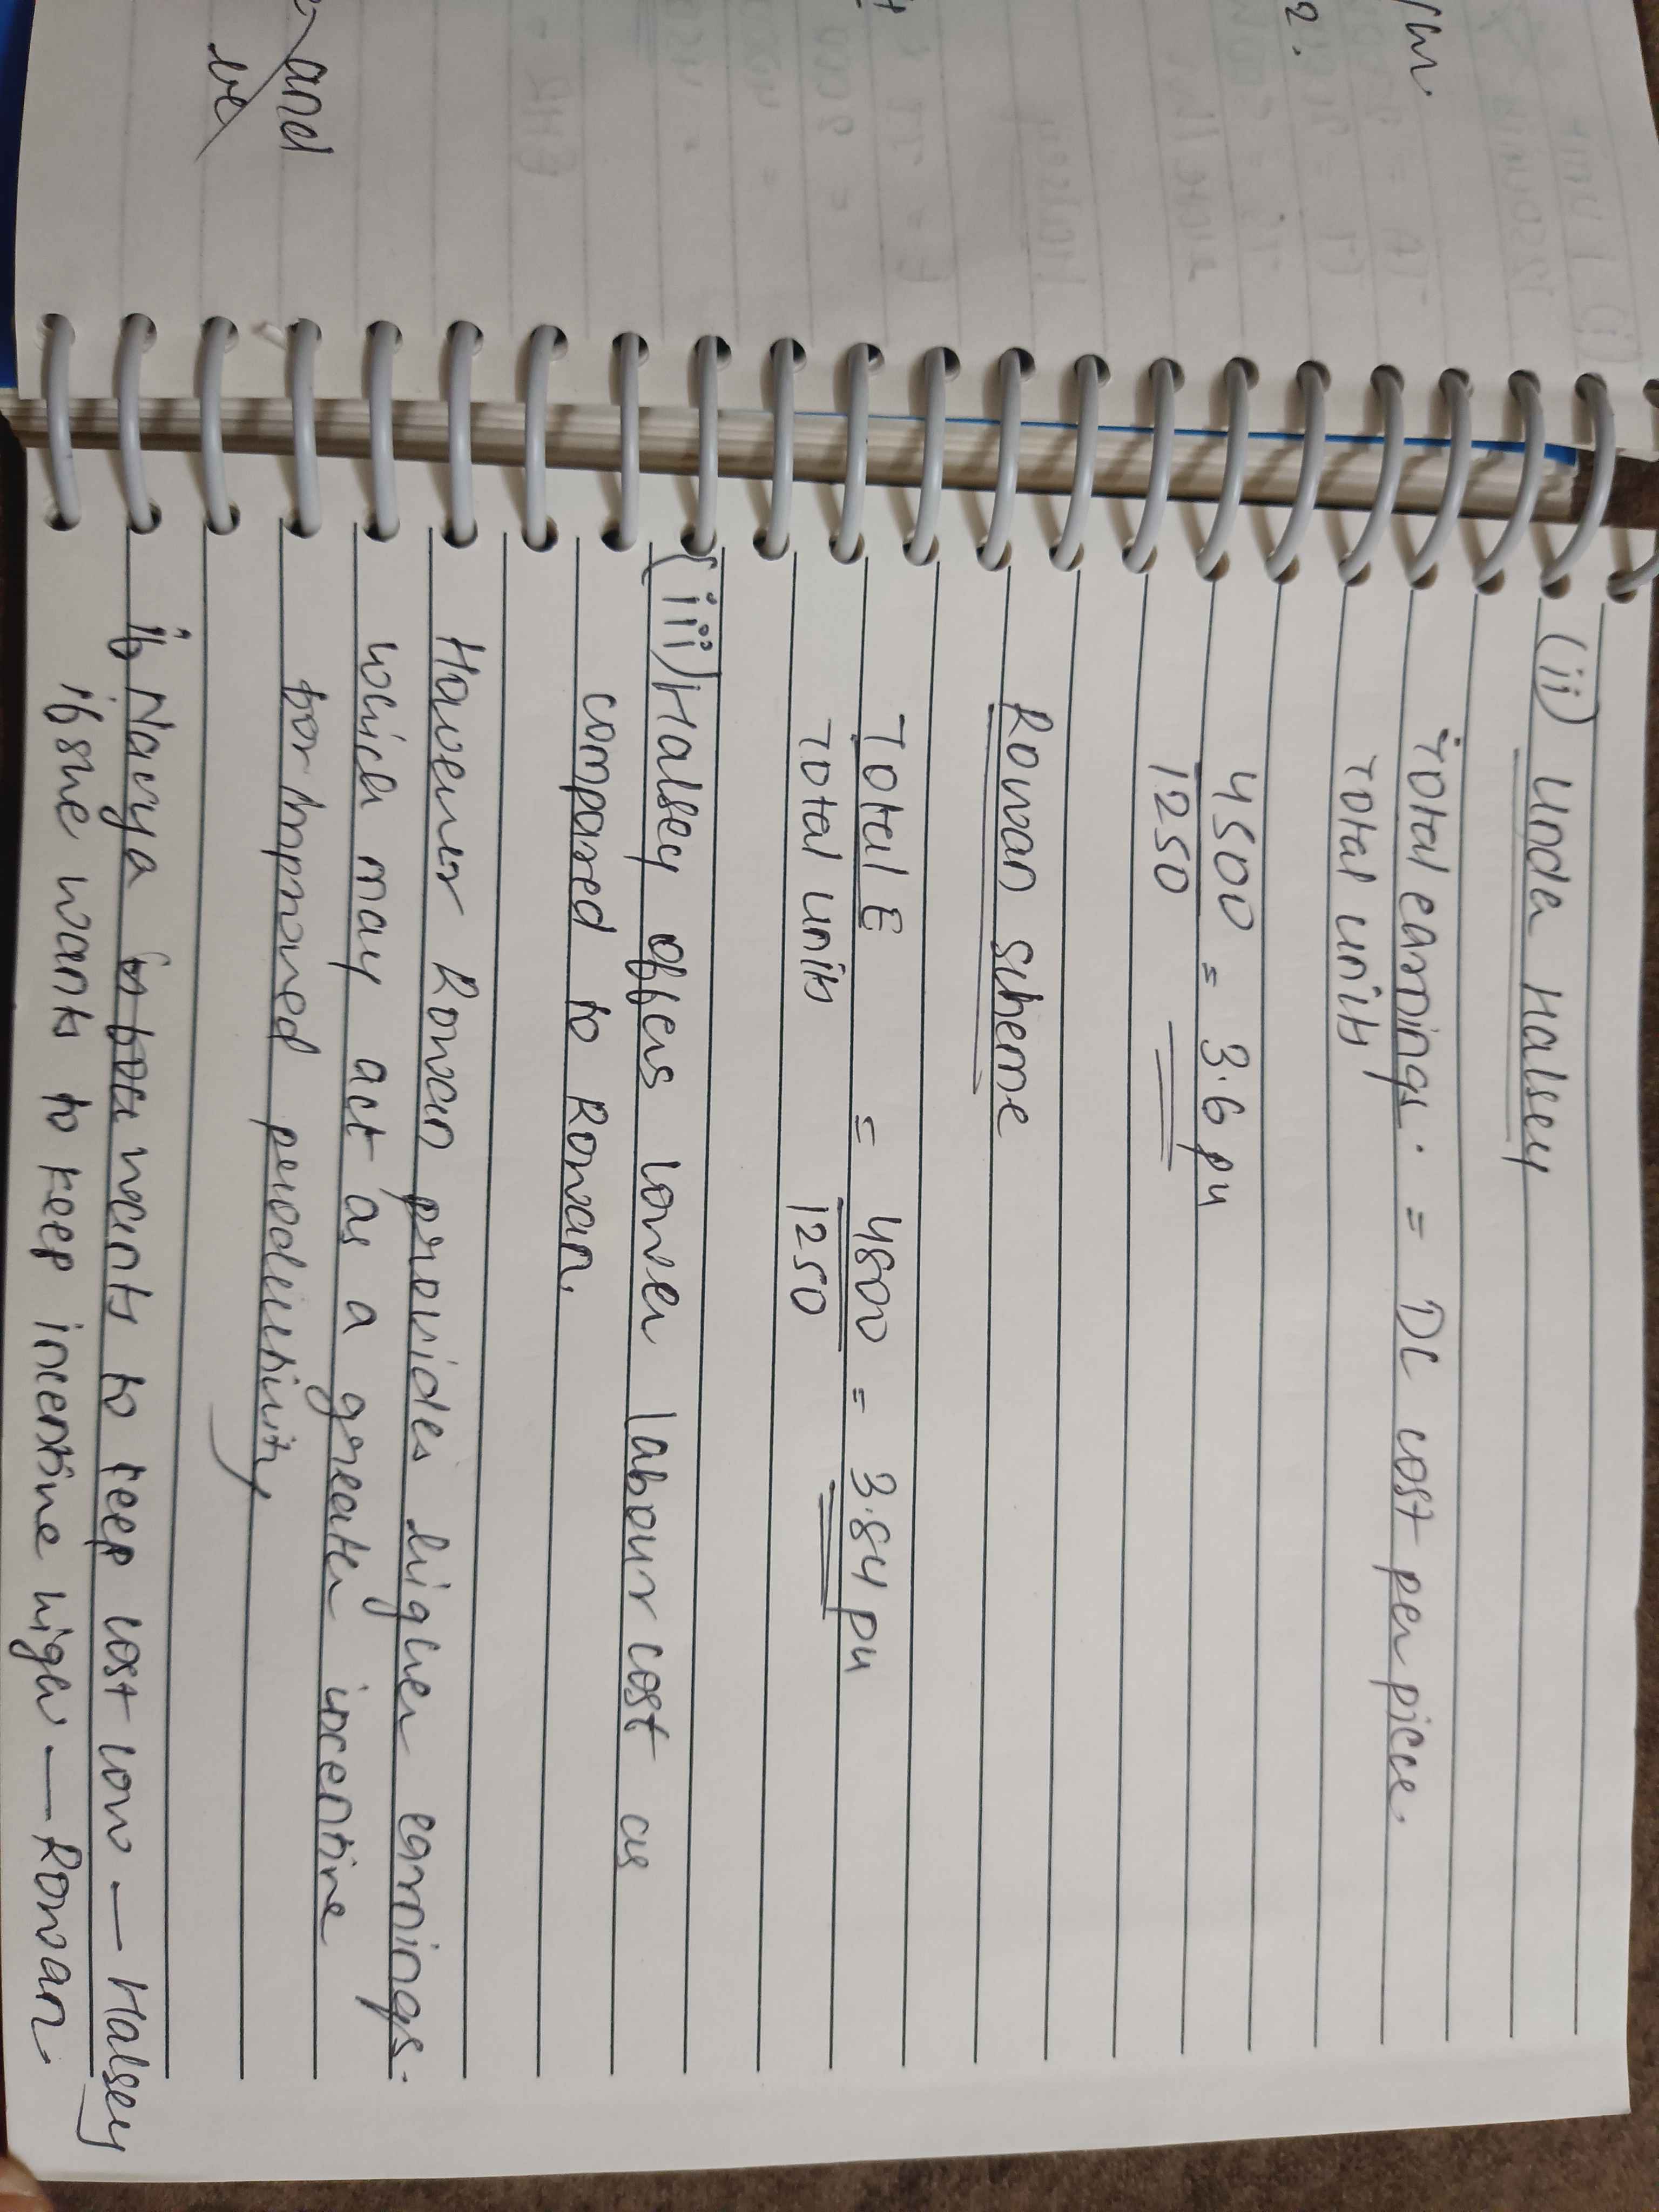 /hr.
2.
and
be
(ii) Under Halsey
Total earnings. = DL cost per piece.
Total units
4500 = 3.6 pu
1250
Rowan scheme
Total E = 4800 = 3.84 pu
Total units 1250
(iii) Halsey offers lower labour cost as
compared to Rowan.
However Rowan provides higher earnings.
which may act as a greater incentive
for improved productivity
if Navya wants to keep cost low — Halsey
if she wants to keep incentive high — Rowan.